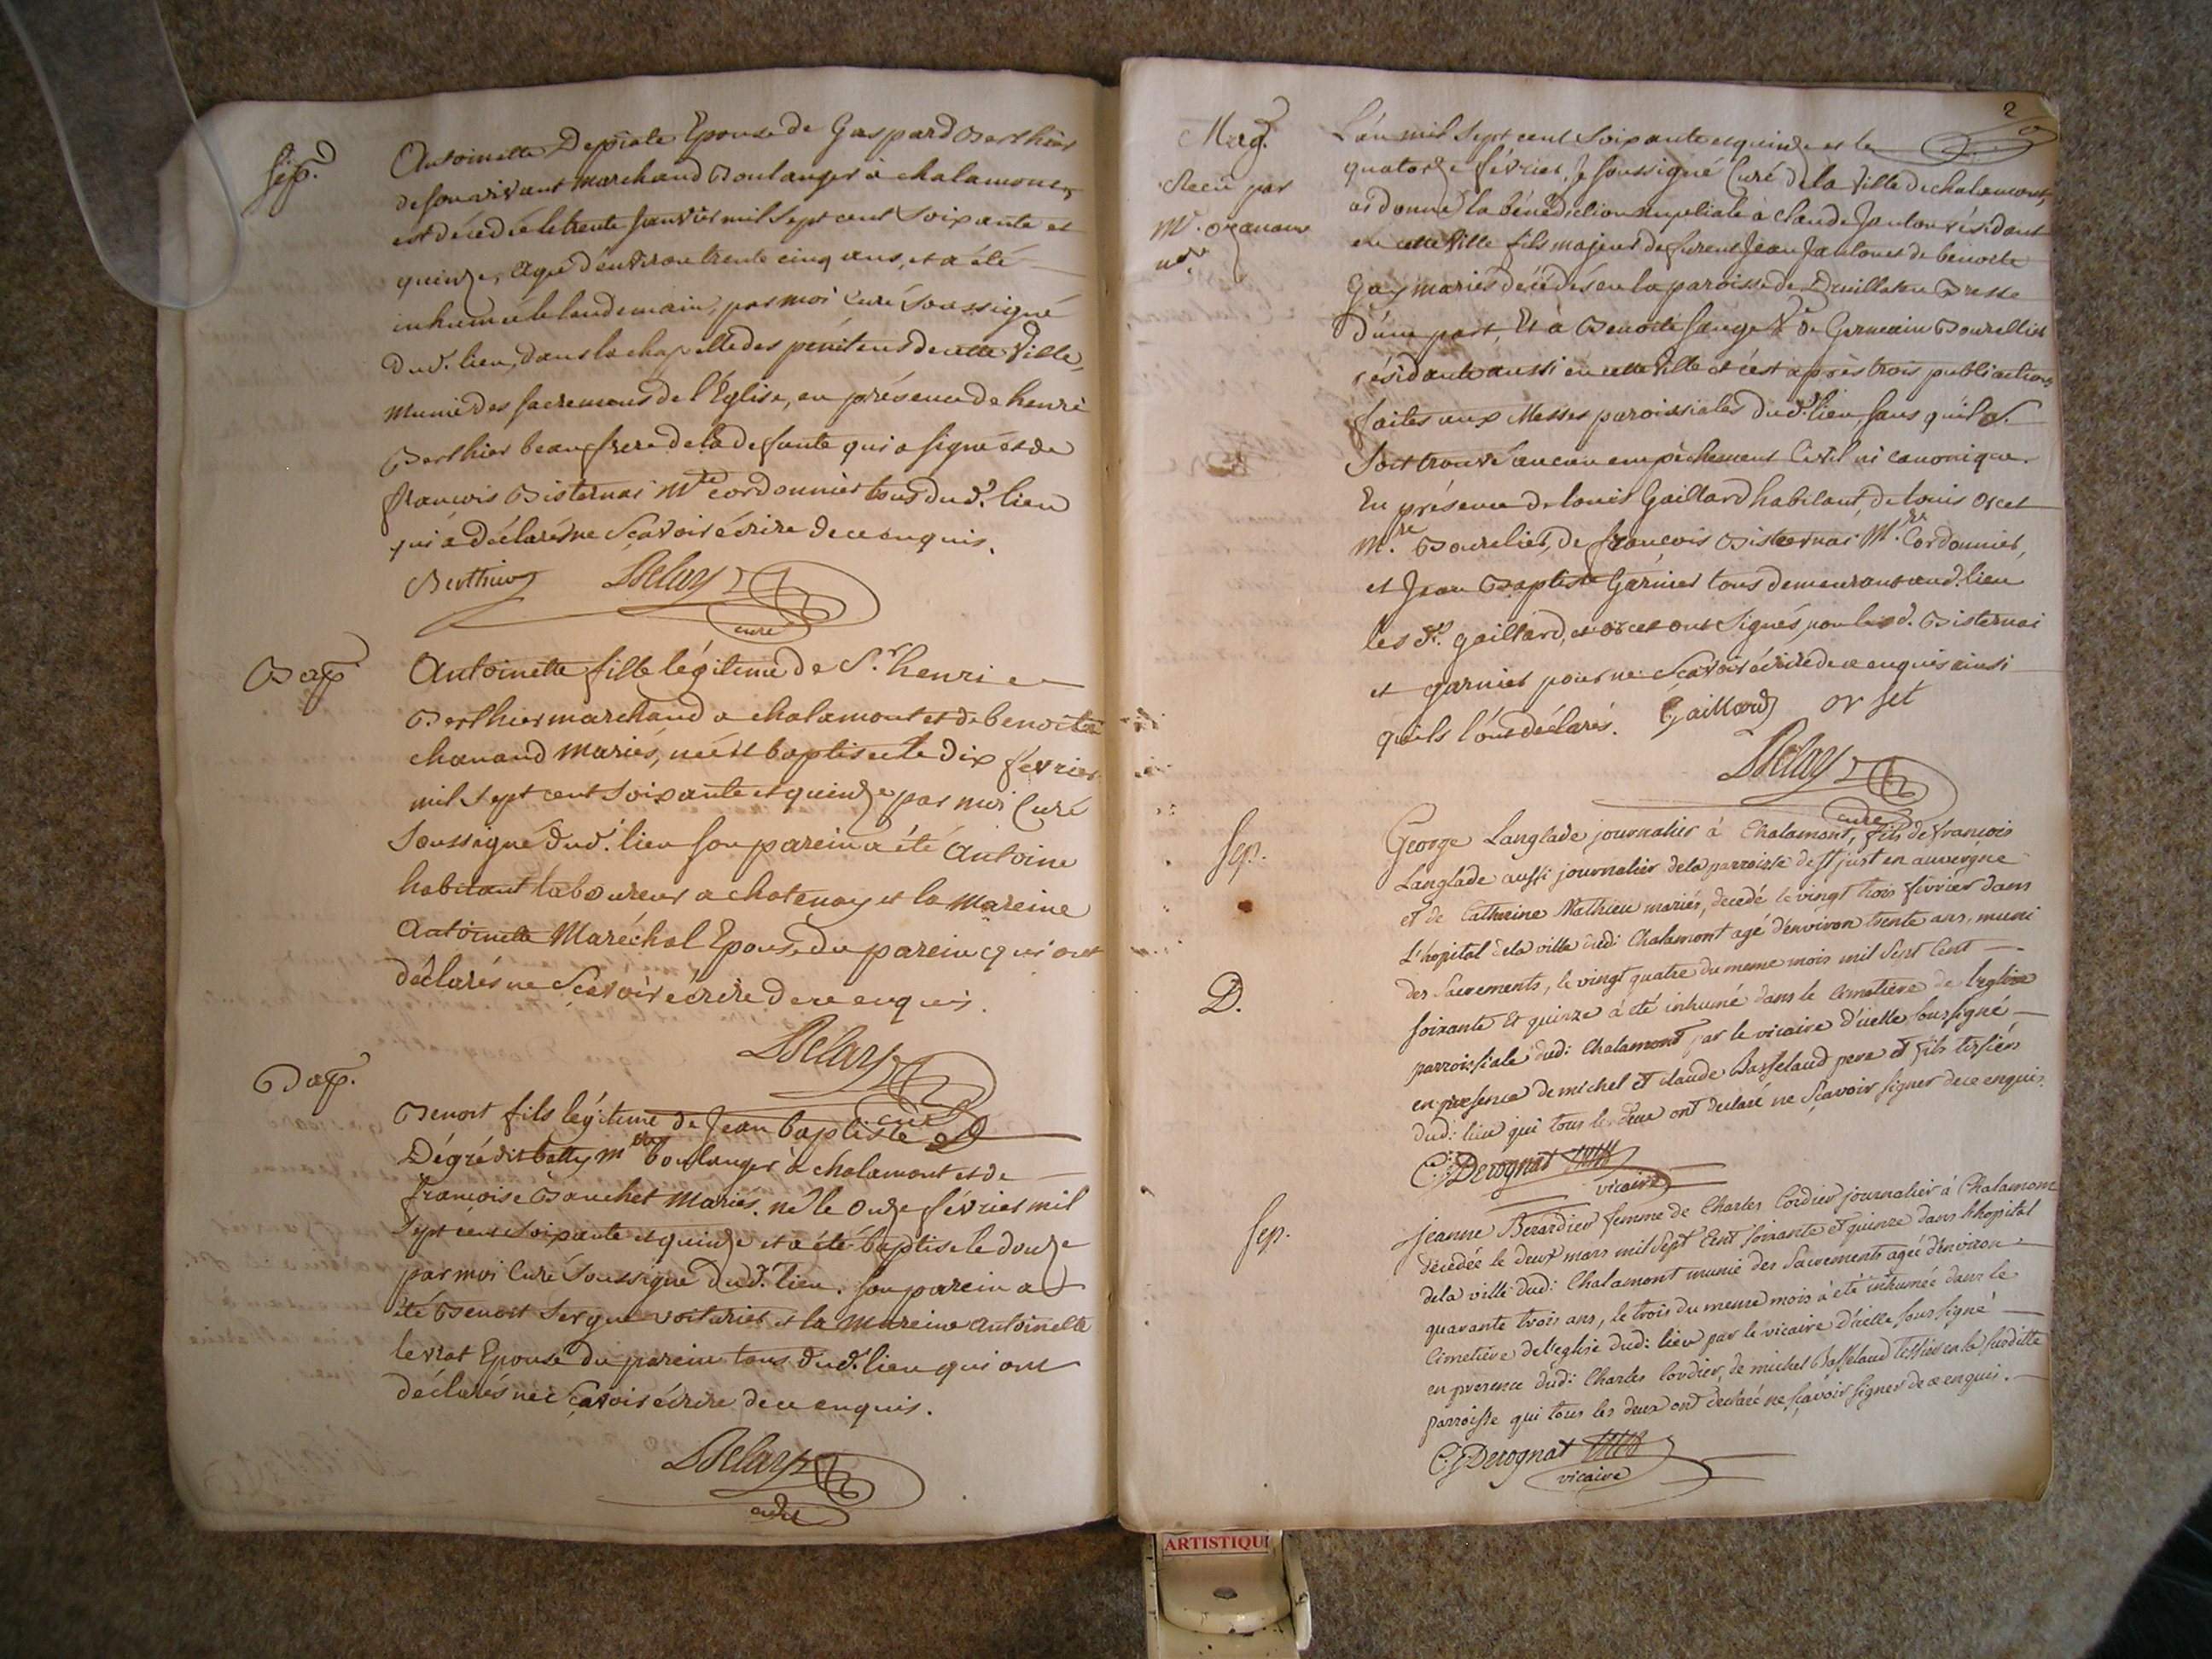 Sep.
Antoinette Epouse de Gaspard Berthier
de son vivant marchand Boulanger à chalamont,
est décédée le trente janvier mil sept cent soixante et
quinze, agée d'environ trente cinq ans, et a été
inhumée le lendemain, par moi curé soussigné
dud. lieu, dans la chapelle des pénitens de cette ville,
munie des sacremens de l'Eglise, en présence de henri
Berthier beaufrere de la defunte qui a signé et de
françois Bisternai Mtre cordonnier tous dud. lieu
qui a déclaré ne sçavoir écrire de ce enquis.
Berthier Delay
curé
Bap
Antoinette fille légitime de Sr. henri
Berthier marchand a chalamont et de benoite
chanand mariés, née et baptisée le dix fevrier
mil sept cent soixante et quinze par moi curé
soussigné dud. lieu son parein a été Antoine
habitant laboureur a chatenay et la mareine
Antoinette Maréchal Epouse du parein qui ont
déclarés ne sçavoir écrire de ce enquis.
Delay
curé
Bap.
Benoit fils légitime de Jean baptiste
Dégré dit batty mtre boulanger à chalamont et de
françoise Bauchet mariés. né le onze février mil
sept cent soixante et quinze et a été baptisé le douze
par moi curé soussigné dud. lieu. son parein a
été Benoit voiturier et la mareine antoinette
levrat Epouse du parein tous dud. lieu qui ont
déclarés ne sçavoir écrire de ce enquis.
Delay
curé
2
Mag.
Recu par
Mr.
nre
L'an mil sept cent soixante et quinze et le
quatorze fevrier, Je soussigné curé de la ville de chalamont,
ai donné la bénédiction nuptiale à claude Janton résidant
en cette ville fils majeur de furent Jean Janton et de benoite
Gay mariés décédés en la paroisse de Druillat en Bresse
d'une part, Et à Benoite Ve de Germain Bourellier
résidante aussi en cette ville et c'est après trois publications
faites aux Messes paroissiales dud. lieu, sans qu'il se
soit trouvé aucun empèchement civil ni canonique.
En présence de louis Gaillard habitant, de louis orcet
M.re Bourelier, de françois Bisternai M.tre Cordonnier,
et Jean Baptiste Garnier tous demeurans aud. lieu
les dts. gaillard, et orcet ont signés, non lesd. Bisternai
et garnier pour ne sçavoir écrire de ce enquis ainsi
qu'ils l'ont déclarés. Gaillard or set
Delay
curé
Sep.
D.
George Langlade journalier à Chalamont, fils de francois
Langlade aussi journalier dela parroisse de st just en auvergne
et de Catherine Mathieu mariés, decedé le vingt trois fevrier dans
L'hopital dela ville dud: Chalamont agé d'environ trente ans, muni
des sacrements, le vingt quatre du meme mois mil sept cent
soixante et quinze à été inhumé dans le cimetiere de l'eglise
parroissiale dud: Chalamont par le vicaire d'icelle soussigné
en presence de michel et claude Basseland pere et fils tissiers
dud: lieu qui tous les deux ont declaré ne sçavoir signer de ce enquis.
C: Derognat
vicaire
Sep.
Jeanne Berardier femme de Charles Cordier journalier à Chalamont
decedée le deux mars mil sept cent soixante et quinze dans l'hopital
dela ville dud: Chalamont munie des sacrements ageé d'environ
quarante trois ans, le trois du meme mois à été inhumée dans le
cimetiere de l'eglise dud: lieu par le vicaire d'icelle soussigné
en presence dud: Charles Cordier, de michel Basseland tissier en la susditte
parroisse qui tous les deux ont declaré ne sçavoir signer de ce enquis.
C: Derognat
vicaire
ARTISTIQU